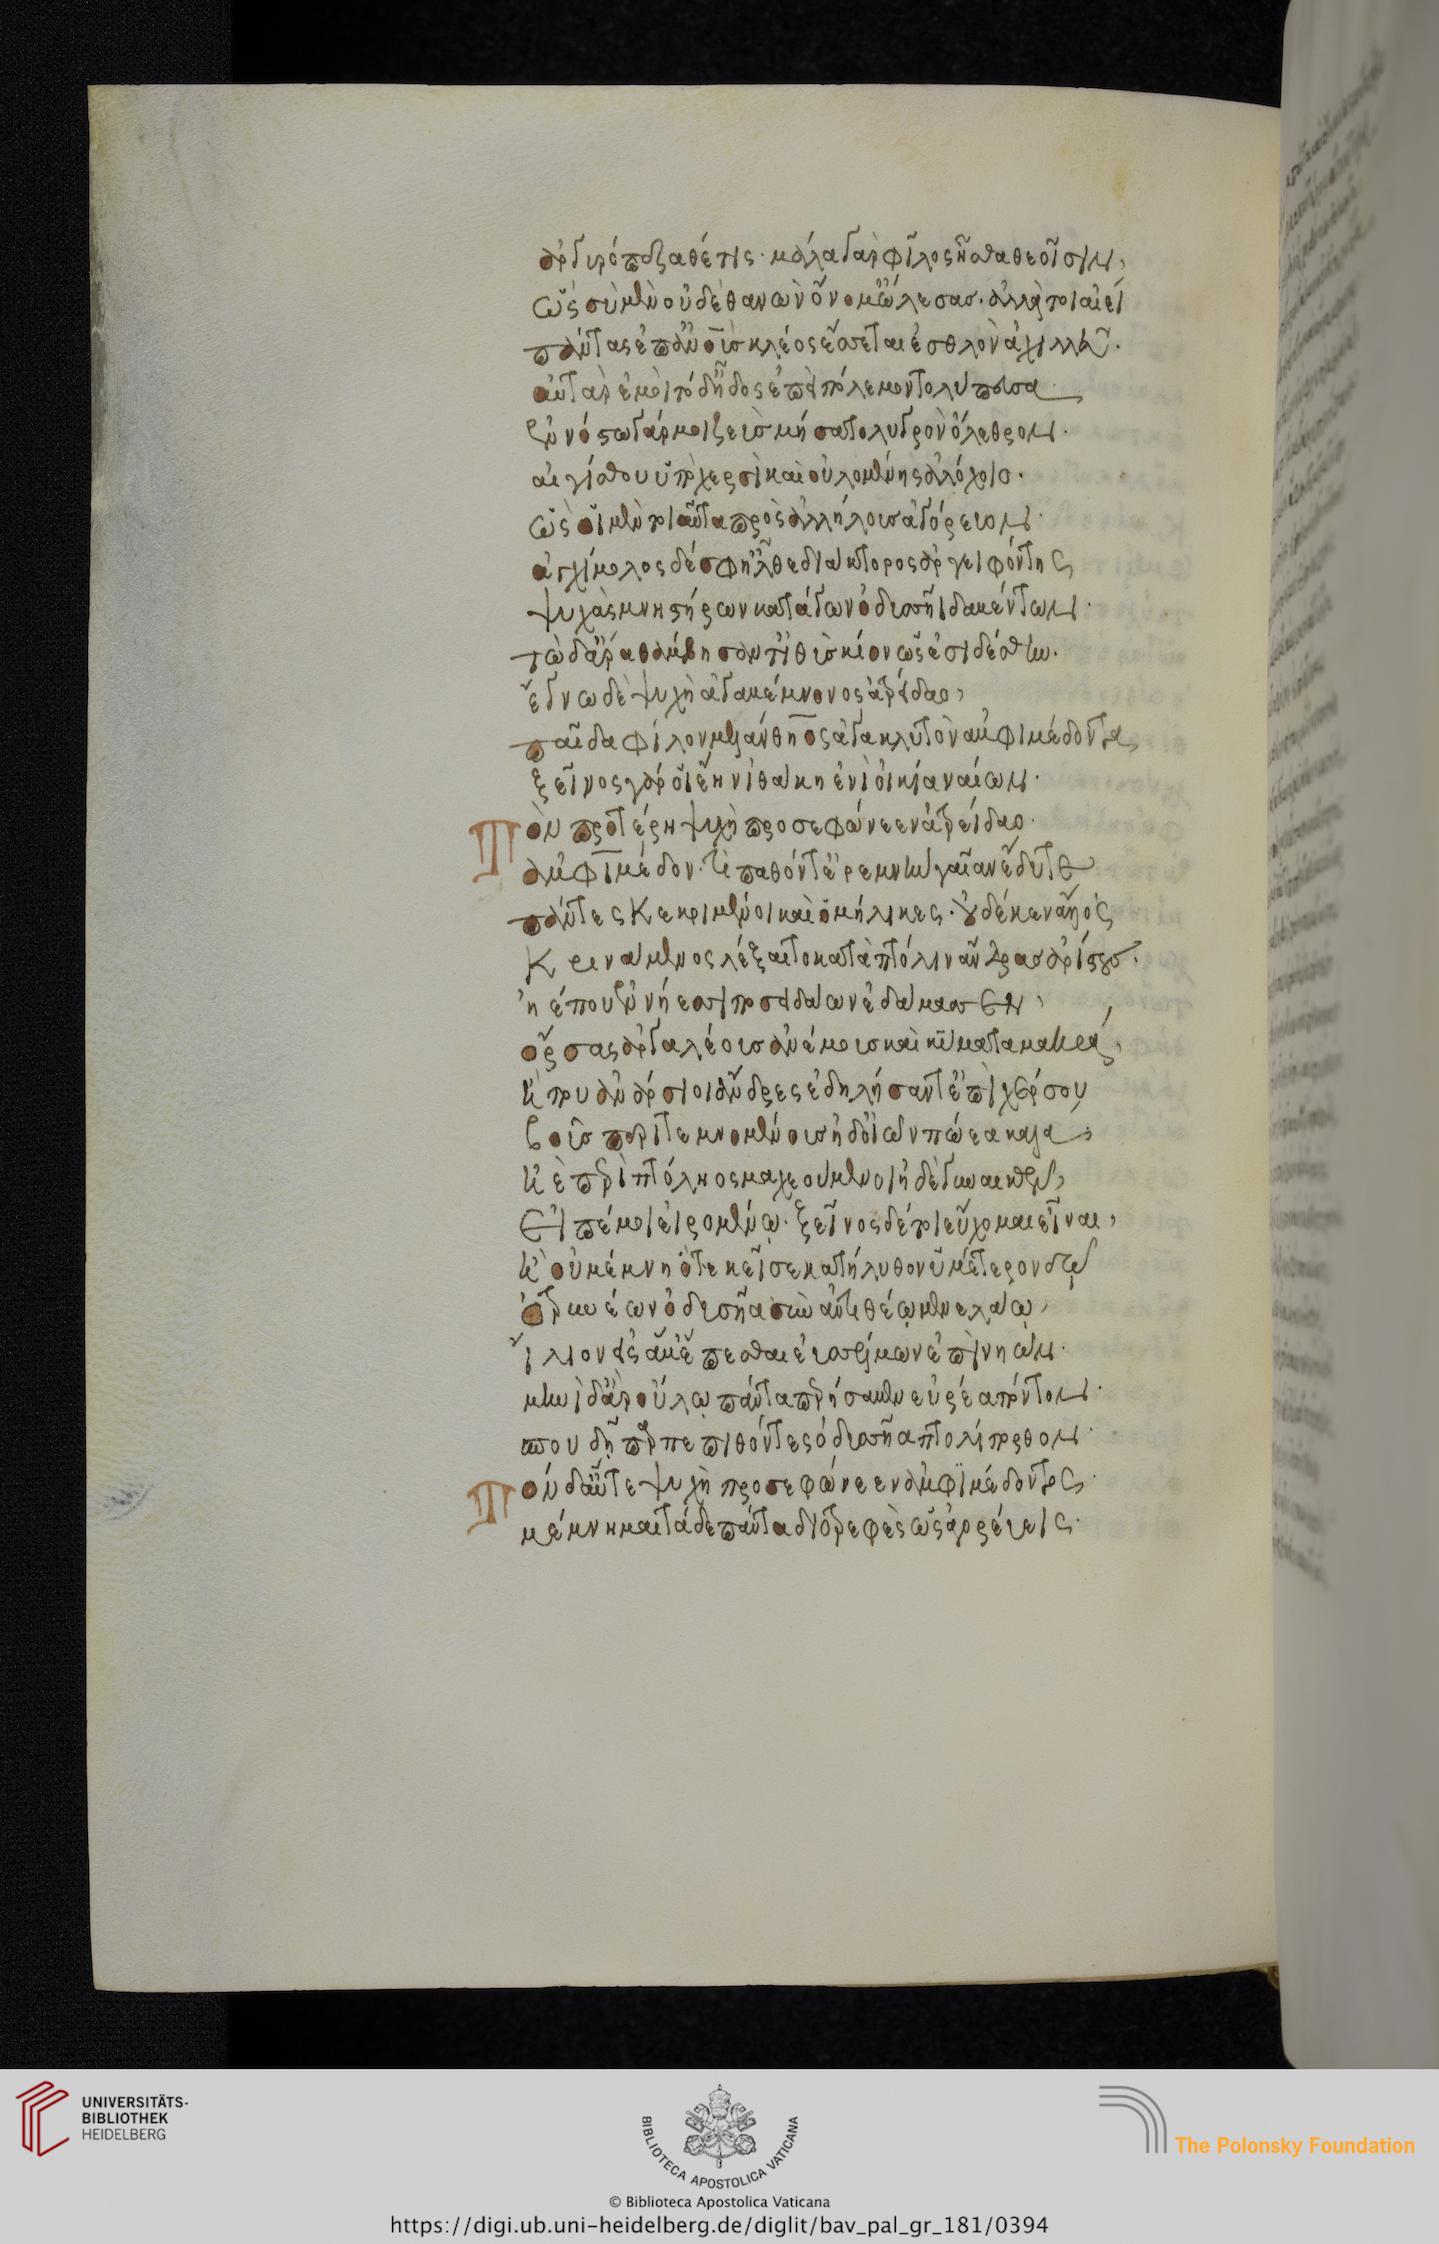 ἀργυρόπεζα θέτις· μάλα γὰρ φίλος ἦσθα θεοῖσιν,
ὣς σὺ μὲν οὐδὲ θανὼν ὄνομ' ὤλεσας. ἀλλά τοι αἰεὶ
πάντας ἐπ' ἀνθρώπους κλέος ἔσσεται ἐσθλὸν ἀχιλλεῦ.
αὐτὰρ ἐμοὶ τί τόδ' ἦδος ἐπεὶ πόλεμον τολύπευσα
ἐν νόστω γάρ μοι ζεὺς μήσατο λυγρὸν ὄλεθρον.
αἰγίσθου ὑπὸ χερσὶ καὶ οὐλομένης ἀλόχοιο.
ὣς οἱ μὲν τοιαῦτα πρὸς ἀλλήλους ἀγόρευον.
ἀγχίμολος δέ σφ' ἦλθε διάκτορος ἀργειφόντης
ψυχὰς μνηστήρων κατάγων ὀδυσῆι δαμέντων.
τὼ δ' ἄρα θαμβήσαντ' ἰθὺς κίον ὡς ἐσιδέσθην.
ἔγνω δὲ ψυχὴ ἀγαμέμνονος ἀτρείδαο,
παῖδα φίλον μελανῆος ἀγακλυτὸν ἀμφιμέδοντα,
ξεῖνος γάρ οἱ ἔην ἰθάκη ἐνὶ οἰκία ναίων.
Τὸν προτέρη ψυχὴ προσεφώνεεν ἀτρείδαο.
ἀμφίμεδον. τί παθόντ' ἐρεμνὴν γαῖαν ἔδυτε
πάντες κεκριμένοι καὶ ὁμήλικες. οὐδέ κεν ἄλλως
κρινάμενος λέξαιτο κατὰ πτόλιν ἄνδρας ἀρίστους.
ἠ έπου ἐν νήεσσι ποσειδάων ἐδάμασσεν,
ὄρσας ἀργαλέους ἀνέμους καὶ κύματα μακρά,
ἤ που ἀνάρσιοι ἄνδρες ἐδηλήσαντ' ἐπὶ χέρσου
βοῦς περιτεμνομένους ἠδ' οἰῶν πώεα καλά,
ἠὲ περὶ πτόληος μαχεούμενοι ἠδὲ γυναικῶν,
Εἰπέ μοι εἰρομένω. ξεῖνος δέ τοι εὔχομαι εἶναι,
ἢ οὐ μέμνη ὅτε κεῖσε κατήλυθον ὑμέτερον δῶ
ὀτρυνέων ὀδυσῆα σὺν ἀντιθέω μενελάω,
ἴλιον εἰς ἅμ' ἕπεσθαι ἐυσσέλμων ἐπὶ νηῶν.
μηνὶ δ' ἄρ' οὔλω πάντα περήσαμεν εὐρέα πόντον.
σπουδῇ παρπεπιθόντες ὀδυσῆα πτολίπορθον.
Τὸν δ' αὖτε ψυχὴ προσεφώνεεν ἀμφιμέδοντος.
μέμνημαι τάδε πάντα διοτρεφὲς ὡς ἀγορεύεις.
UNIVERSITÄTS-
BIBLIOTHEK
HEIDELBERG
BIBLIOTECA APOSTOLICA VATICANA
The Polonsky Foundation
© Biblioteca Apostolica Vaticana
https://digi.ub.uni-heidelberg.de/diglit/bav_pal_gr_181/0394